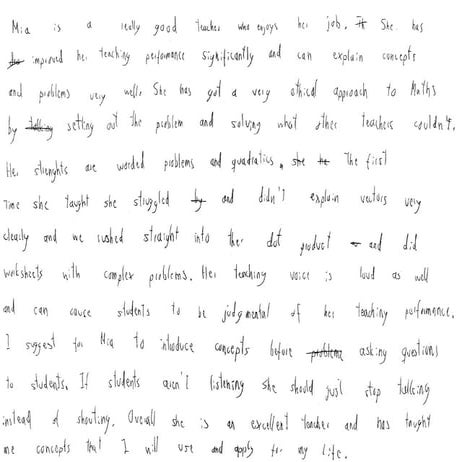 Mia is a really good teacher who enjoys her job. It She has
improved her teaching performance significantly and can explain concepts
and problems very well. She has got a very ethical approach to Maths
by talking setting out the problem and solving what other teachers couldn't.
Her strenghts are worded problems and quadratics. she he The first
Time she taught she struggled by and didn't explain vectors very
clearly and we rushed straight into the dot product and did
worksheets with complex problems. Her teaching voice is loud as well
and can cause students to be judgmental of her teaching performance.
I suggest for Mia to introduce concepts before problems asking questions
to students. If students aren't listening she should just stop talking
instead of shouting. Overall she is an excellent teacher and has taught
me concepts that I will use and apply for my life.